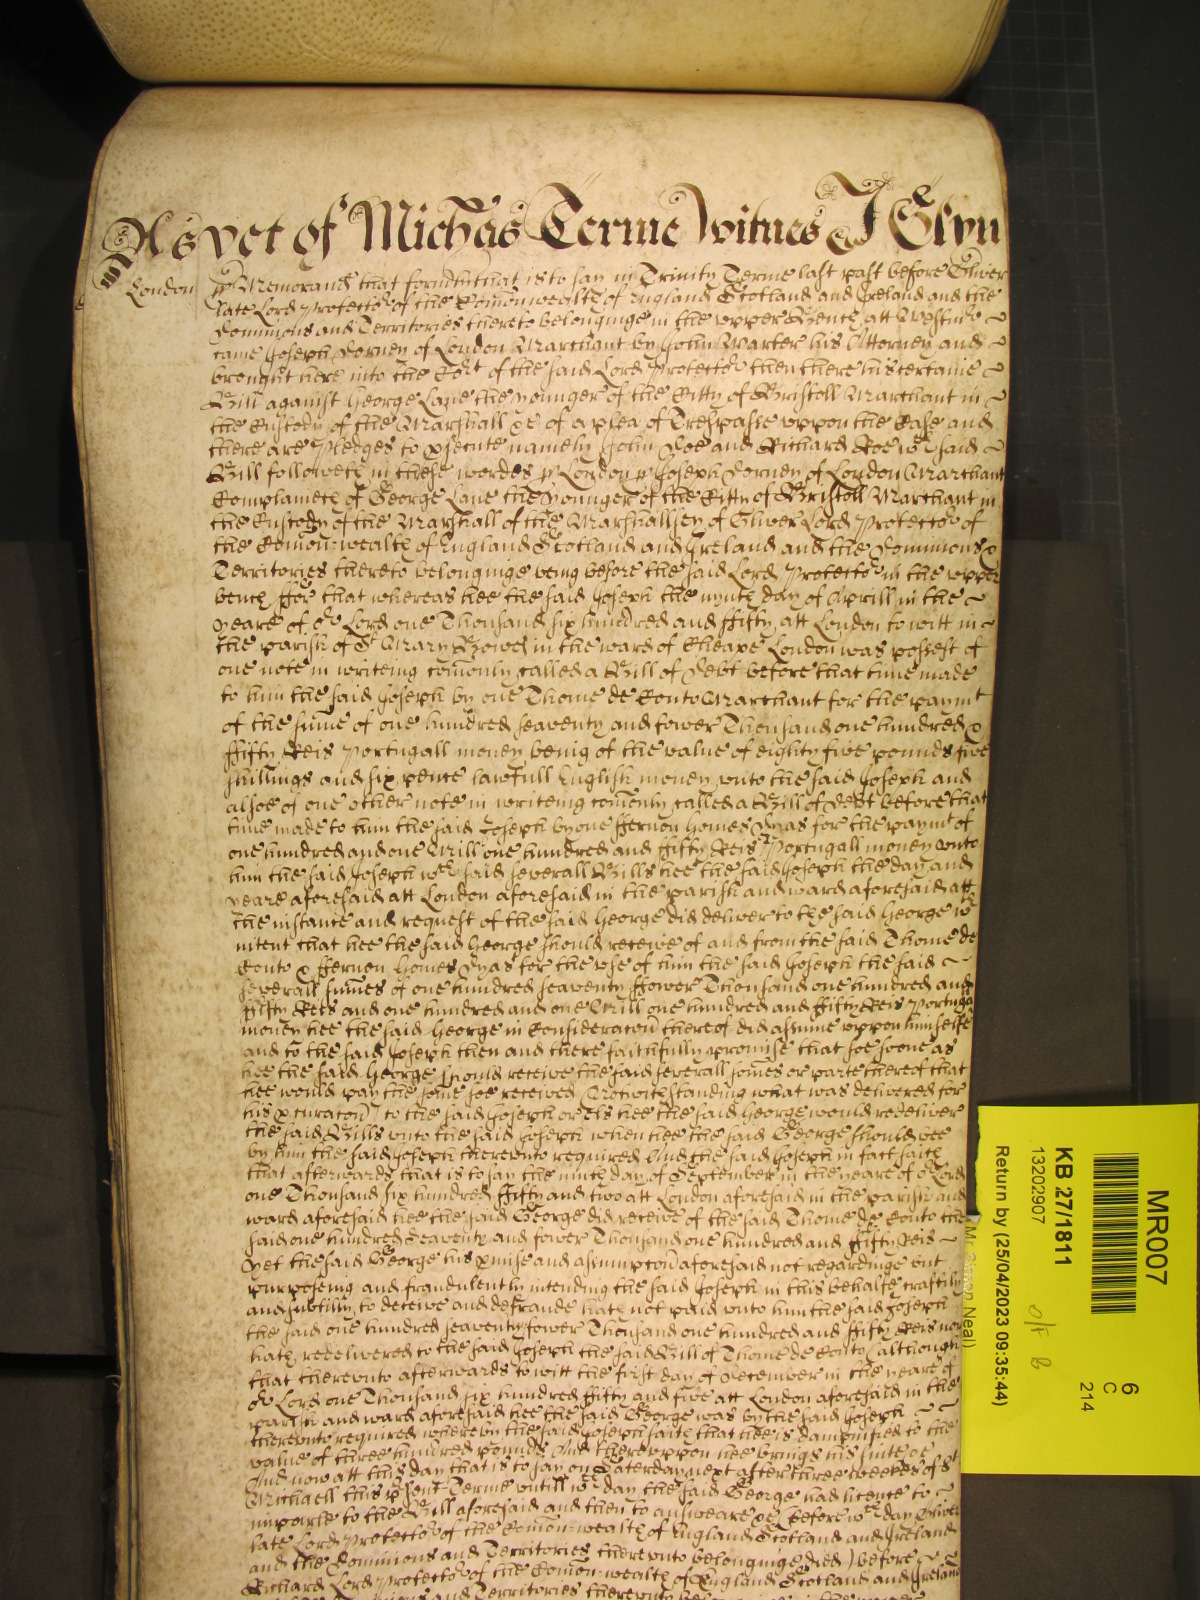 As yet of Michas Terme witnes J Glyn
London
Memorand that formerly that is to say in Trinity Terme last past before Oliver
late Lord Protector of the Comonwealth of England Scotland and Ireland and the
Dominions and Territories thereto belonginge in the upper Bench att Westmr
came Joseph Dorney of London Marchant by John Warter his Attorney and
brought here into the Cort of the said Lord Protector then there his certaine
Bill against George Lane the younger of the Citty of Bristoll Marchant in
the Custody of the Marshall &c of a plea of Trespasse uppon the Case and
there are Pledges to psecute namely John Doe and Richard Roe wch said
Bill followeth in these wordes ss London ss Joseph Dorney of London Marchant
Complaineth of George Lane the younger of the Citty of Bristoll Marchant in
the Custody of the Marshall of the Marshallsey of Oliver Lord Protector of
the Comon-wealth of England Scotland and Ireland and the Dominions &
Territories thereto belonginge being before the said Lord Protector in the upper
bench ffor that whereas hee the said Joseph the nynth day of Aprill in the
yeare of or Lord one Thousand six hundred and ffifty att London to witt in
the parish of St Mary Bowe in the ward of Cheape London was possest of
one note in writeing comonly called a Bill of Debt before that time made
to him the said Joseph by one Thome de Conto Marchant for the paymt
of the sume of one hundred seaventy and fower Thousand one hundred &
ffifty Reis Portugall money being of the value of eighty five pounds five
shillings and six pence lawfull English money unto the said Joseph and
alsoe of one other note in writeing comonly called a Bill of Debt before that
time made to him the said Joseph by one ffernon Homes Dyas for the paymt of
one hundred and one Mill one hundred and ffifty Reis Portugall money unto
him the said Joseph wch said severall Bills hee the said Joseph the day and
yeare aforesaid att London aforesaid in the parish and ward aforesaid att
the instance and request of the said George did deliver to the said George wth
intent that hee the said George should receive of and from the said Thome de
Conto & ffernon Homes Dyas for the use of him the said Joseph the said
severall sumes of one hundred seaventy ffower Thousand one hundred and
ffifty Reis and one hundred and one Mill one hundred and ffifty Reis Portugall
money hee the said George in Consideracon thereof did assume uppon himselfe
and to the said Joseph then and there faithfully promise that soe soone as
hee the said George should receive the said severall somes or parte thereof that
hee would pay the some soe received (Notwithstanding what was delivered for
his pcuracon) to the said Joseph or els hee the said George would redeliver
the said Bills unto the said Joseph when hee the said George should bee
by him the said Joseph thereunto required And the said Joseph in fact saith
that afterwards that is to say the ninth day of September in the yeare of or Lord
one Thousand six hundred ffifty and two att London aforesaid in the parish and
ward aforesaid hee the said George did receive of the said Thome de Conto the
said one hundred seaventy and fower Thousand one hundred and ffifty Reis
yet the said George his pmise and assumpcon aforesaid not regardinge but
purposeing and fraudulently intending the said Joseph in this behalfe craftily
and subtilly to deceive and defraude hath not paid unto him the said Joseph
the said one hundred seaventy fower Thousand one hundred and ffifty Reis nor
hath redelivered to the said Joseph the said Bill of Thome de Conto (although
that thereunto afterwards to witt the first day of December in the yeare of
or Lord one Thousand six hundred ffifty and five att London aforesaid in the
parish and ward aforesaid hee the said George was by the said Joseph
thereunto required whereby the said Joseph saith that hee is dampnified to the
value of three hundred pounds And thereuppon hee brings his suite &c
And now att this day that is to say on Saterday next after three weekes of St
Michaell this psent Terme untill wch day the said George had licence to
imparle to the Bill aforesaid and then to answeare &c before wch day Oliver
late Lord Protector of the Comon-wealth of England Scotland and Ireland
and the Dominions and Territories thereunto belonginge died) before
Richard Lord Protector of the Comon-wealth of England Scotland and Ireland
and Territories thereunto
MR007
KB 27/1811
13202907
Return by (25/04/2023 09:35:44)
Neal)
6
C
214